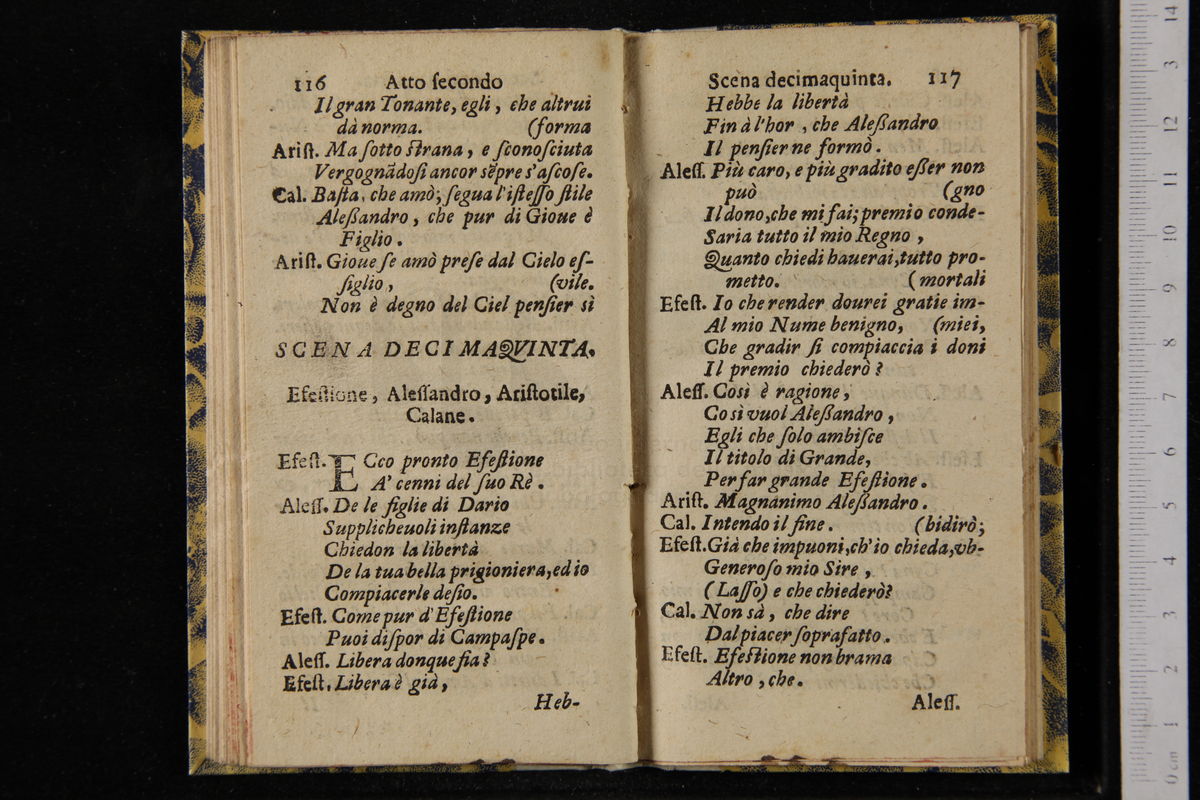 116 Atto ſecondo
Il gran Tonante, egli, che altrui
dà norma. (forma
Ariſt. Ma ſotto ſtrana, e ſconoſciuta
Vergognãdoſi ancor sẽpre s'aſcoſe.
Cal. Baſta, che amò; ſegua l'iſteſſo ſtile
Aleßandro, che pur di Gioue è
Figlio.
Ariſt. Gioue ſe amò preſe dal Cielo eſ-
ſiglio, (vile.
Non è degno del Ciel penſier sì
SCENA DECIMAQVINTA.
Efeſtione, Aleſſandro, Ariſtotile,
Calane.
Efeſt. ECco pronto Efeſtione
A' cenni del ſuo Rè.
Aleſſ. De le figlie di Dario
Supplicheuoli inſtanze
Chiedon la libertà
De la tua bella prigioniera, ed io
Compiacerle deſio.
Efeſt. Come pur d'Efeſtione
Puoi diſpor di Campaſpe.
Aleſſ. Libera donque fia?
Efeſt. Libera è già,
Heb-
Scena decimaquinta. 117
Hebbe la libertà
Fin à l'hor, che Aleßandro
Il penſier ne formò.
Aleſſ. Più caro, e più gradito eßer non
può (gno
Il dono, che mi fai; premio conde-
Saria tutto il mio Regno,
Quanto chiedi hauerai, tutto pro-
metto. (mortali
Efeſt. Io che render dourei gratie im-
Al mio Nume benigno, (miei,
Che gradir ſi compiaccia i doni
Il premio chiederò?
Aleſſ. Così è ragione,
Cosi vuol Aleßandro,
Egli che ſolo ambiſce
Il titolo di Grande,
Per far grande Efeſtione.
Ariſt. Magnanimo Aleßandro.
Cal. Intendo il fine. (bidirò;
Efeſt. Già che impuoni, ch'io chieda, vb-
Generoſo mio Sire,
(Laſſo) e che chiederò?
Cal. Non sà, che dire
Dal piacer ſoprafatto.
Efeſt. Efeſtione non brama
Altro, che.
Aleſſ.
14
3
12
11
10
9
8
7
6
5
4
3
2
1
0 cm